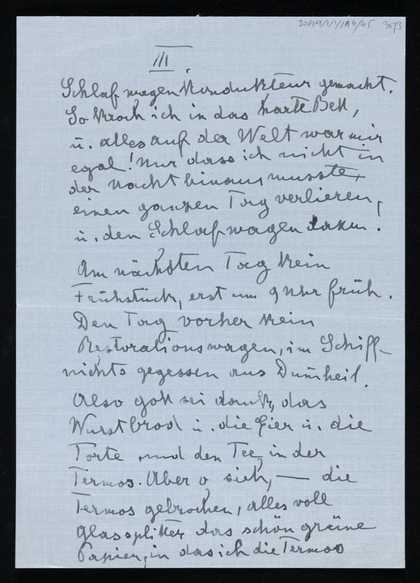 III
Schlafwagenkondukteur gemacht.
So kroch ich in das harte Bett,
u. alles auf der Welt war mir
egal! Nur dass ich nicht in
der Nacht hinaus musste,
einen ganzen Tag verlieren,
u. den Schlafwagen dazu.
Am nächsten Tag kein
Frühstück, erst um 9 Uhr früh.
Den Tag vorher kein
Restorationswagen, im Schiff
nichts gegessen aus Dumheit.
Also gott sei dank, das
Wurstbrod u. die Eier u. die
Torte und den Tee, in der
Termos. Aber o sieh, — die
Termos gebrochen, alles voll
Glassplitter das schön grüne
Papier, in das ich die Termos